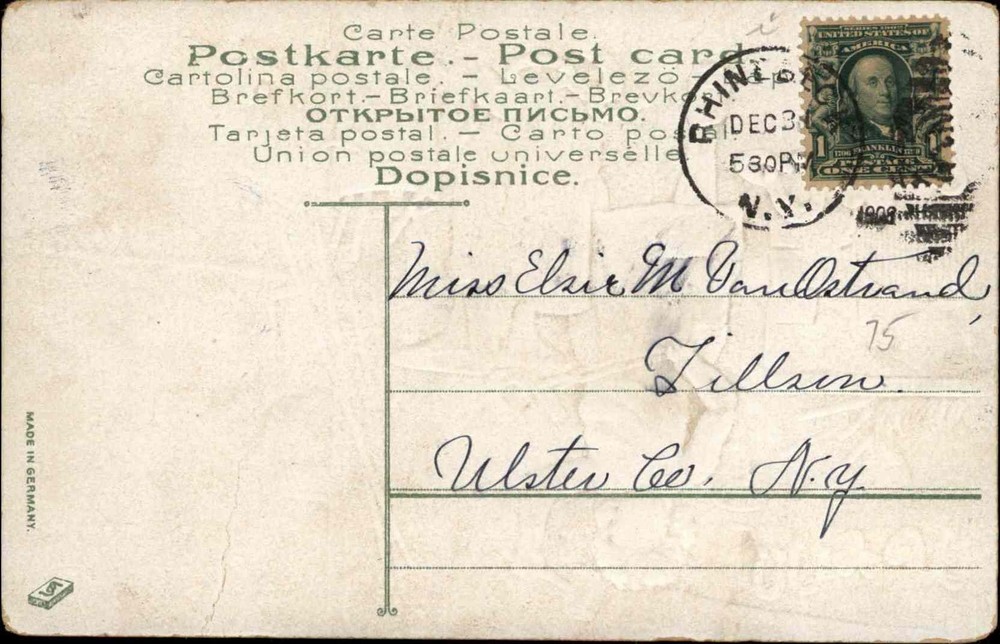 Carte Postale.
Postkarte. - Post card
Cartolina postale. - Levelező -
Brefkort. - Briefkaart. - Brevkort
ОТКРЫТОЕ ПИСЬМО.
Tarjeta postal. - Carto postal
Union postale universelle
Dopisnice.
UNITED STATES OF
AMERICA
FRANKLIN
1 1
POSTAGE
ONE CENT
DEC 3
5 30 PM
N.Y.
1908
Miss Elsie M VanOstrand,
75
Tillson.
Ulster Co. N.Y.
MADE IN GERMANY.